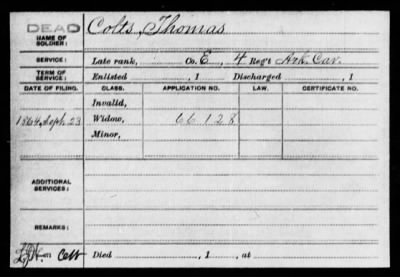 DEAD
NAME OF SOLDIER: Colts, Thomas
SERVICE: Late rank, Co. E, 4 Reg't Ark. Cav.
TERM OF SERVICE: Enlisted , 1 Discharged , 1
DATE OF FILING. CLASS. APPLICATION NO. LAW. CERTIFICATE NO.
Invalid,
1864, Sept. 23 Widow, 66128
Minor,
ADDITIONAL SERVICES:
REMARKS:
Colt Died , 1 , at